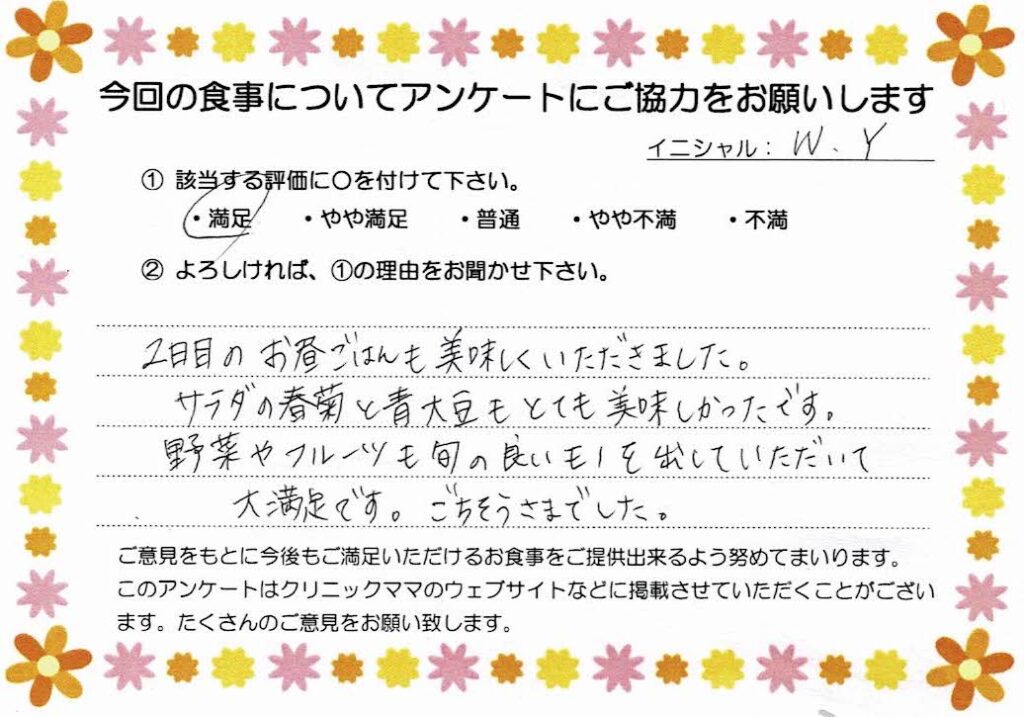 今回の食事についてアンケートにご協力をお願いします
イニシャル： W、Y
① 該当する評価に〇を付けて下さい。
・満足 ・やや満足 ・普通 ・やや不満 ・不満
② よろしければ、①の理由をお聞かせ下さい。
2日目の お昼ごはんも美味しくいただきました。
サラダの春菊と青大豆もとても美味しかったです。
野菜やフルーツも旬の良いモノを出していただいて
大満足です。ごちそうさまでした。
ご意見をもとに今後もご満足いただけるお食事をご提供出来るよう努めてまいります。
このアンケートはクリニックママのウェブサイトなどに掲載させていただくことがござい
ます。たくさんのご意見をお願い致します。